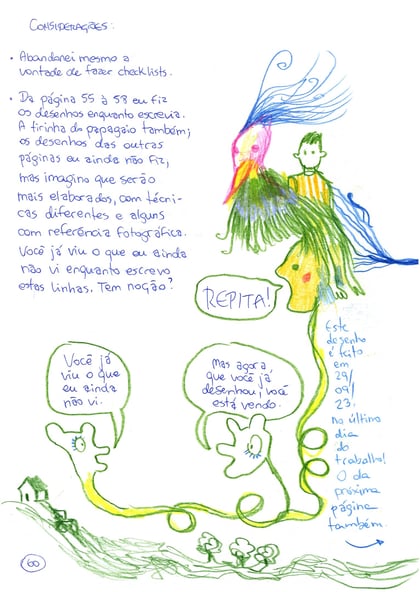 CONSIDERAÇÕES:
• Abandonei mesmo a
vontade de fazer checklists.
• Da página 55 à 58 eu fiz
os desenhos enquanto escrevia.
A tirinha do papagaio também;
os desenhos das outras
páginas eu ainda não fiz,
mas imagino que serão
mais elaborados, com técni-
cas diferentes e alguns
com referência fotográfica.
Você já viu o que eu ainda
não vi enquanto escrevo
estas linhas. Tem noção?
REPITA!
Você já
viu o que
eu ainda
não vi.
Mas agora
que você já
desenhou, você
está vendo.
Este
desenho
é feito
em
29/
09/
23.
No último
dia
do
trabalho!
O da
próxima
página
também.
60